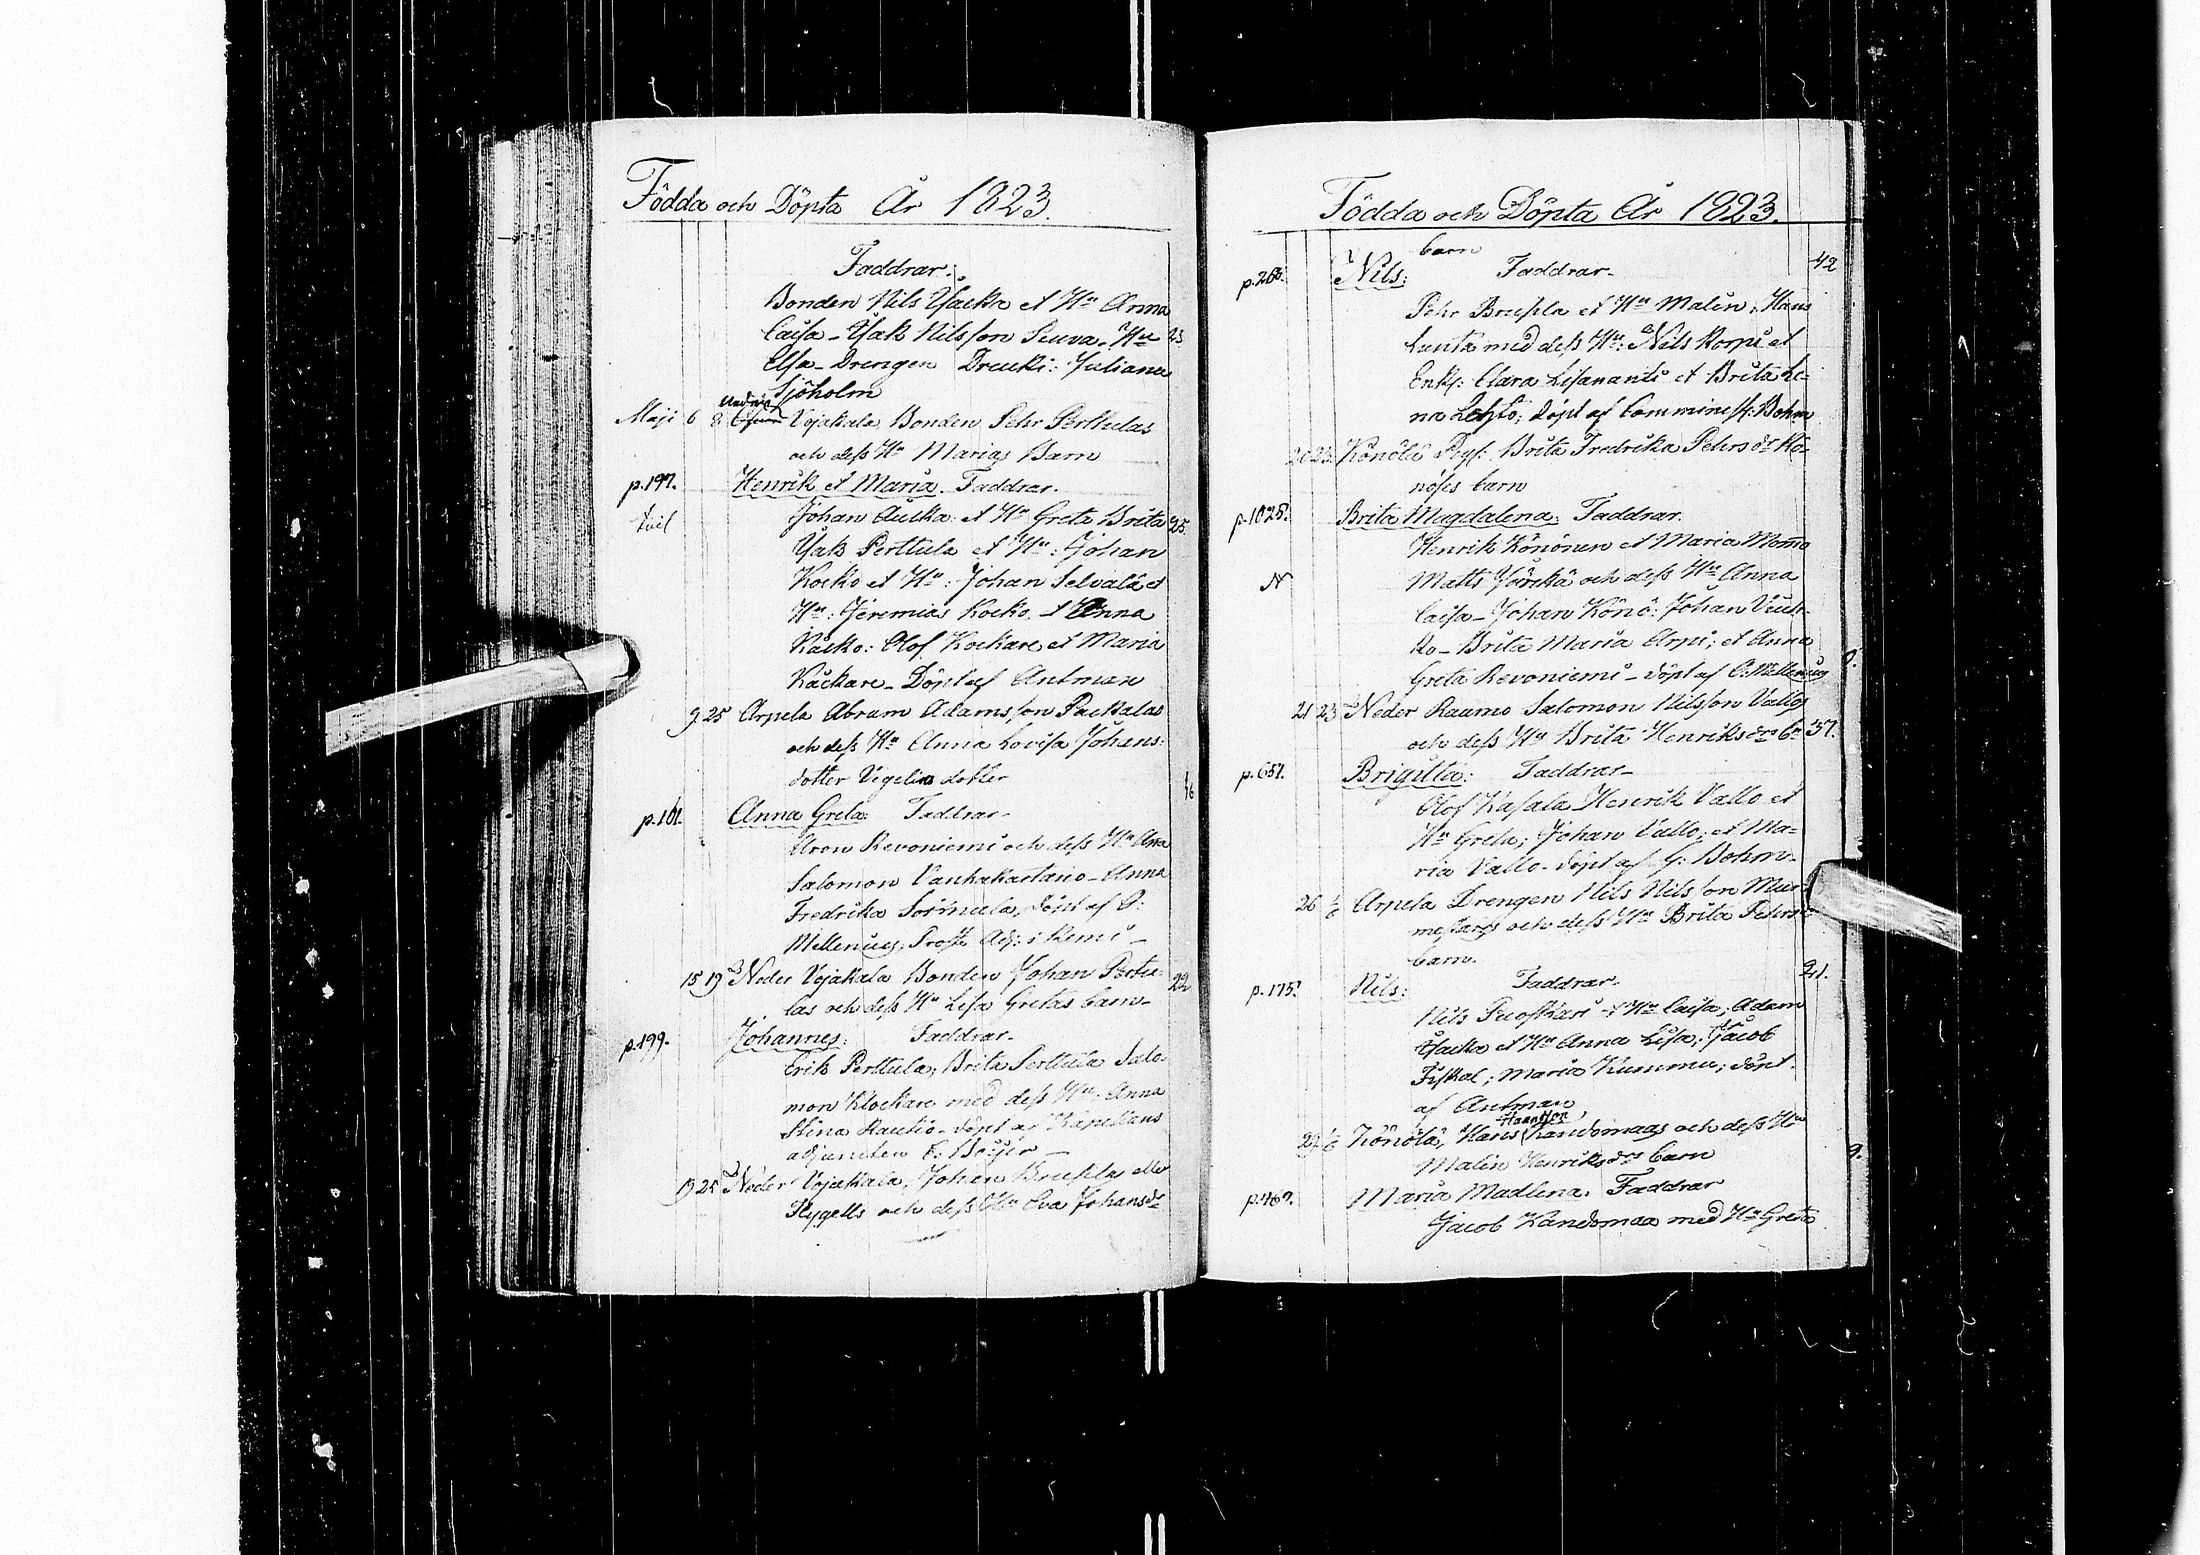 Födda och Döpta År 1823.
Faddrar:
Bonden Nils Yŕacka et Hu Anna
Caisa - Isak Nilsson Hu 23
Elsa - Drengen Drecki: Juliana
Sjöholm
Maji 6 8 Vojakala Bonden Pehr Perttulas
och dess Hu Marias Barn
p.197. Henrik et Maria. Faddrar.
Johan et Hu Greta Brita 25.
Isak Perttula et Hu: Johan
Kocko et Hu: Johan Selvälä et
Hu: Jeremias Kocko et Anna
Kacko: Olof Kockare et Maria
Kackare - Döpt af Antman
9 25 Arpela Abram Adamsson Packalas
och dess Hu Anna Lovisa Johans:
dotter Vegelia dotter
p.161. Anna Greta: Faddrar.
Aron Revoniemi och dess Hu Anna
Salomon Vanhakartano - Anna
Fredrika Sormula, döpt af O:
Mellenius, Prosts Adj: i Kemi -
15 19 Neder Vojakala Bonden Johan Perttu- 22
las och dess Hu Lisa Gretas barn -
p.199. Johannes: Faddrar.
Erik Perttula, Brita Perttula Salo-
mon Klockare med dess Hu: Anna
Stina Rautio - döpt af Kapellans
adjuncten
19 25 Neder Vojakala, Johan eller
Flygells och dess Hu Eva Johansdr
Födda och Döpta År 1823.
barn
p.263. Nils: Faddrar. 42
Pehr et Hu Malin, Hans
Lunta med dess Hu: Nils Korpi et
Enkf: Clara Lisanantti et Brita Le-
na Lehto; döpt af Comminist: Bohm
20 23 Könölä Pigf: Brita Fredrika Petersdr Kö-
nöses barn
p.1025. Brita Magdalena: Faddrar.
Henrik Könönen et Maria Momo
N Matts och dess Hu Anna
Caisa - Johan Könö: Johan
ko - Brita Maria Arpi; et Anna
Greta Revoniemi - döpt af O: Mellenius
21 23 Neder Raumo Salomon Nilsson Vallos
och dess Hu Brita Henriksdrs bn 37.
p.651. Brigitta: Faddrar -
Olof Kasala Henrik Vallo et
Hu Greta; Johan Vallo; et Ma-
ria Vallo - döpt af G: Bohm -
26 Arpela Drengen Nils Nilsson Mur-
mestares och dess Hu Brita Pehrsdr
barn.
p.175. Nils: Faddrar. 21.
Nils Puoskari et Hu Caisa, Adam
Yŕacka et Hu Anna Lisa; Jacob
Fiskal; Maria Kummu; döpt.
af Antman
Hansson
29 Könölä, Hans Kandomaas och dess Hu
Malin Henriksdrs barn 9.
p.169. Maria Madlena. Faddrar
Jacob Kandomaa med Hu Greta